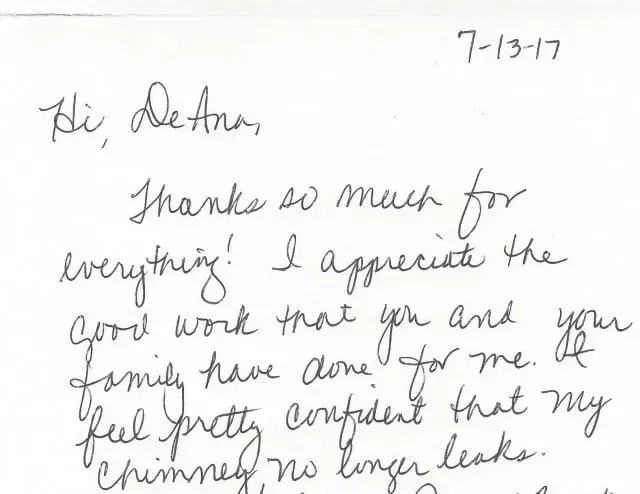 7-13-17
Hi, DeAna,
Thanks so much for
everything! I appreciate the
good work that you and your
family have done for me. I
feel pretty confident that my
chimney no longer leaks.